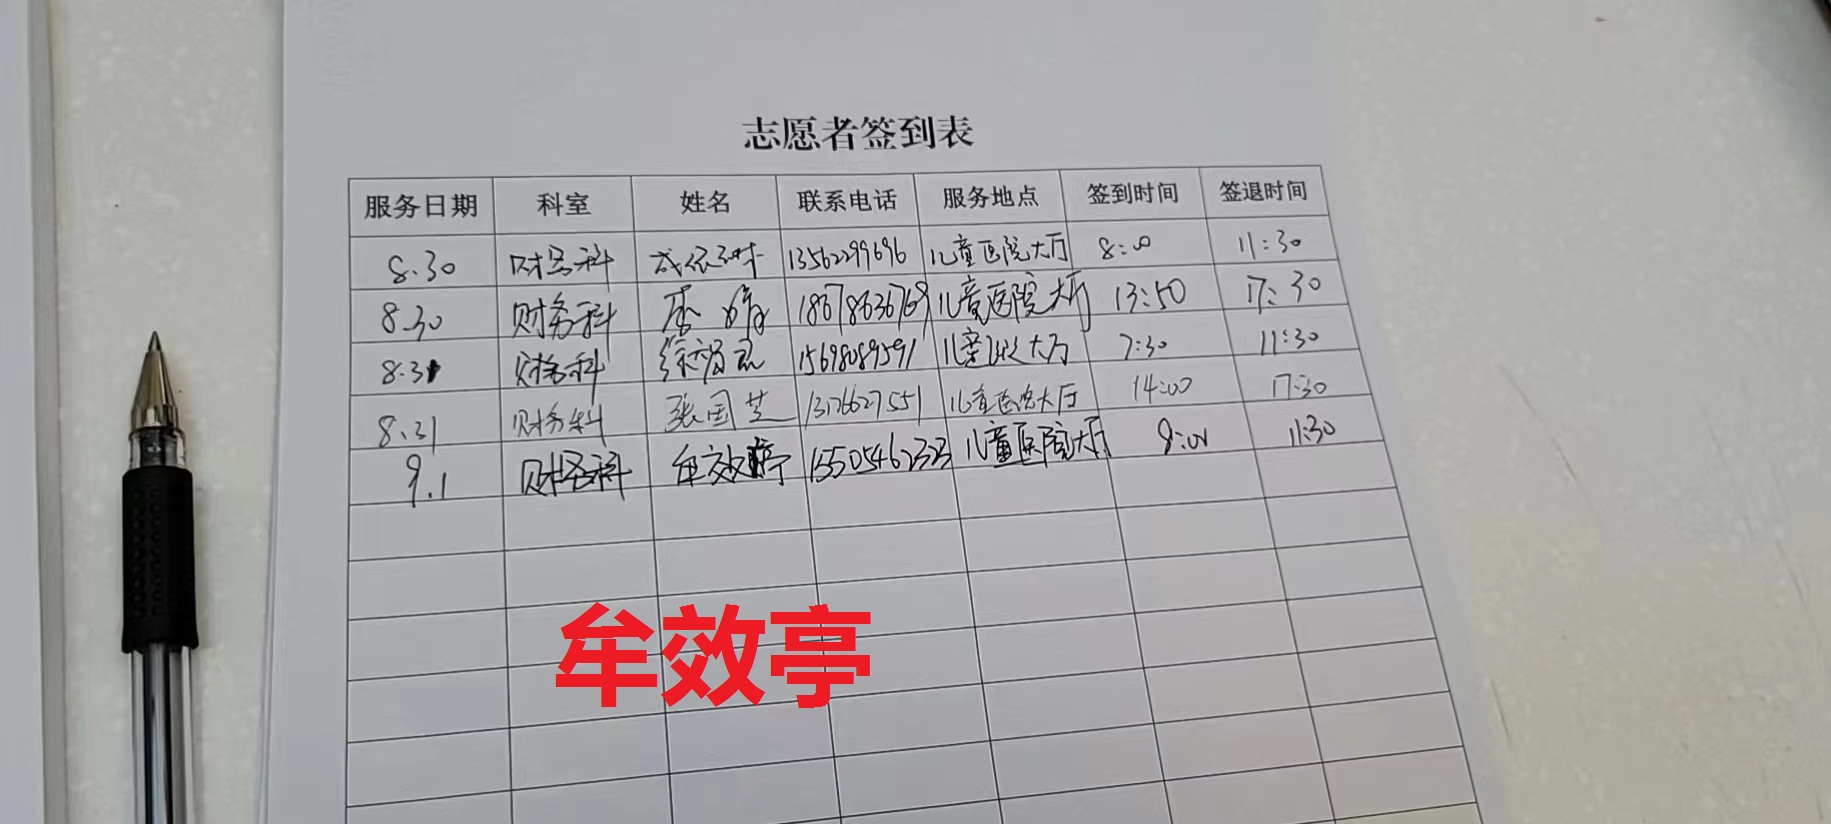 志愿者签到表
服务日期 科室 姓名 联系电话 服务地点 签到时间 签退时间
8.30 财务科 13562299696 儿童医院大厅 8:00 11:30
8.30 财务科 李婷 18678636769 儿童医院大厅 13:50 17:30
8.31 财务科 15698089591 儿童医院大厅 7:30 11:30
8.31 财务科 张国芝 13176627551 儿童医院大厅 14:00 17:30
9.1 财务科 牟效亭 13505462323 儿童医院大厅 8:00 11:30
牟效亭